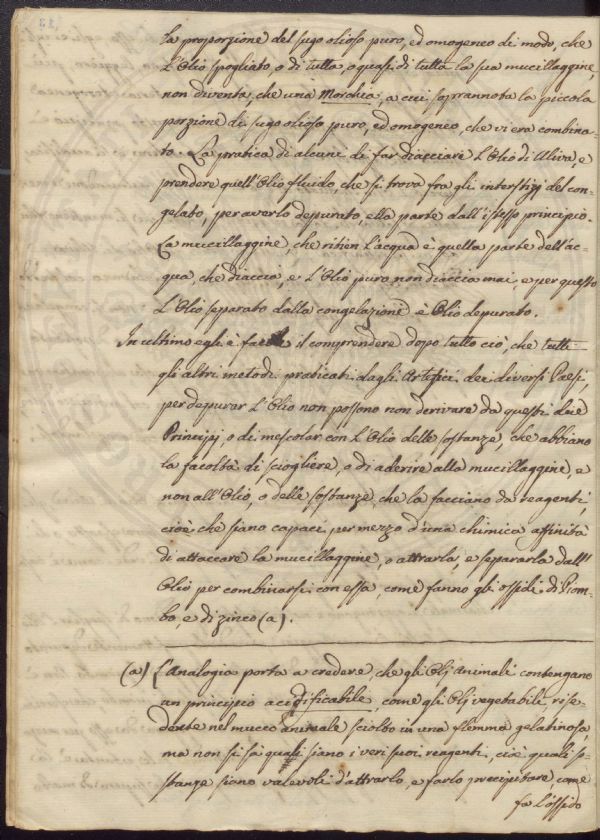 la proporzione del sugo olioso puro, ed omogeneo di modo, che
l'Olio spogliato, o di tutta, o quasi di tutta la sua mucillaggine,
non diventa, che una Morchia, a cui soprannota la piccola
porzione di sugo olioso puro, ed omogeneo, che vi era combina-
to. La pratica di alcuni di far diacciare l'Olio di Aliva, e
prendere quell'Olio fluido, che si trova fra gli interstizj del con-
gelato, per averlo depurato, ella parte dall'istesso principio.
La mucillaggine, che ritien l'acqua è quella parte dell'ac-
qua, che diaccia, e l'Olio puro non diaccia mai, e per questo
l'Olio separato dalla congelazione è Olio depurato.
In ultimo egli è facile il comprendere dopo tutto ciò, che tutti
gli altri metodi praticati dagli Artefici dei diversi Paesi,
per depurar l'Olio non possono non derivare da questi due
Principj, o di mescolar con l'Olio delle sostanze, che abbiano
la facoltà di sciogliere, o di aderire alla mucillaggine, e
non all'Olio, o delle sostanze, che la facciano da reagenti,
cioè che siano capaci per mezzo d'una chimica affinità
di attaccare la mucillaggine, o attrarla, e separarla dall'
Olio per combinarsi con essa, come fanno gli ossidi di Piom-
bo, e di zinco (a).
(a) L'Analogia porta a credere, che gli Olj Animali contengano
un principio acidificabile, come gli Olj vegetabili, rise-
dente nel mucco animale sciolto in una flemma gelatinosa,
ma non si sà quali siano i veri suoi reagenti, cioè quali so-
stanze siano valevoli d'attrarlo, e farlo precipitare, come
fa l'ossido